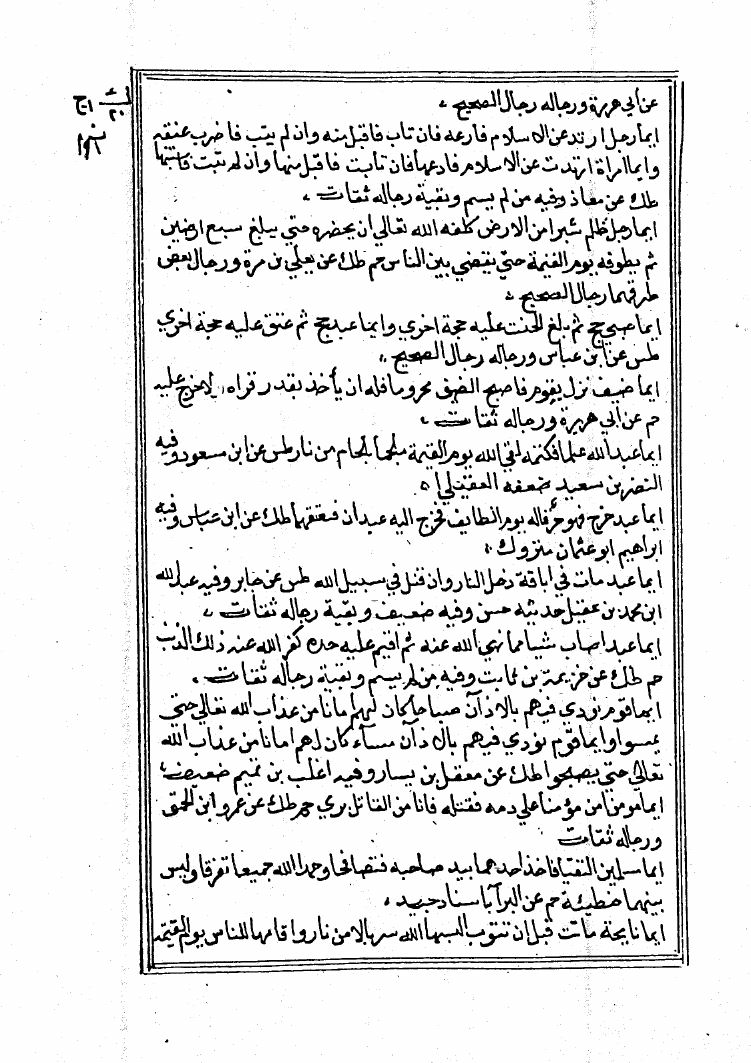 عن ابي هريرة ورجاله رجال الصحيح ،
ايما رجل ارتد عن الاسلام فادعه فان تاب فاقبل منه وان لم يتب فاضرب عنقه
وايما امراة ارتدت عن الاسلام فادعها فان تابت فاقبل منها وان لم تتب فاستتبها
طك عن معاذ وفيه من لم يسم وبقية رجاله ثقات ،
ايما رجل ظلم شبرا من الارض كلفه الله تعالي ان يحضره حتي يبلغ سبع ارضين
ثم يطوقه يوم القيمة حتي يقضي بين الناس حم طك عن يعلي بن مرة ورجال بعض
طرقهما رجال الصحيح ،
ايما صبي حج ثم بلغ الحنث عليه حجة اخري وايما عبد حج ثم عتق عليه حجة اخري
طس عن ابن عباس ورجاله رجال الصحيح ،
ايما ضيف نزل بقوم فاصبح الضيف محروما فله ان يأخذ بقدر قراه لاحرج عليه
حم عن ابي هريرة ورجاله ثقات ،
ايما عبد الله علما فكتمه لقي الله يوم القيمة ملجما بلجام من نار طس عن ابن مسعود وفيه
النضر بن سعيد ضعفه العقيلي ٥
ايما عبد خرج فهو حر قاله يوم الطايف فخرج اليه عبدان فعتقهما طك عن ابن عباس وفيه
ابراهيم ابو عثمان متروك ،
ايما عبد مات في اباقة دخل النار وان قتل في سبيل الله طس عن جابر وفيه عبد الله
ابن محمد بن عقيل حديثه حسن وفيه ضعيف وبقية رجاله ثقات ،
ايما عبد اصاب شيا مما نهي الله عنه ثم اقيم عليه حده كفر الله عنه ذلك الذنب
حم طك عن خزيمة بن ثابت وفيه من لم يسم وبقية رجاله ثقات ،
ايما قوم نودي فيهم بالاذان صباحا كان لهم امانا من عذاب الله تعالي حتي
يمسوا وايما قوم نودي فيهم بالاذان مسآء كان لهم امانا من عذاب الله
تعالي حتي يصبحوا طك عن معقل بن يسار وفيه اغلب بن تميم ضعيف ،
ايما مومن امن مؤمنا علي دمه فقتله فانا من القاتل بري حم طك عن عمرو ابن الحمق
ورجاله ثقات
ايما مسلمين التقيا فاخذ احدهما بيد صاحبه فتصافحا وحمدا الله جميعا تفرقا وليس
بينهما خطيئة حم عن البرآ باسناد جيد ،
ايما نايحة ماتت قبل ان تتوب البسها الله سربالا من نار واقامها للناس يوم القيمة